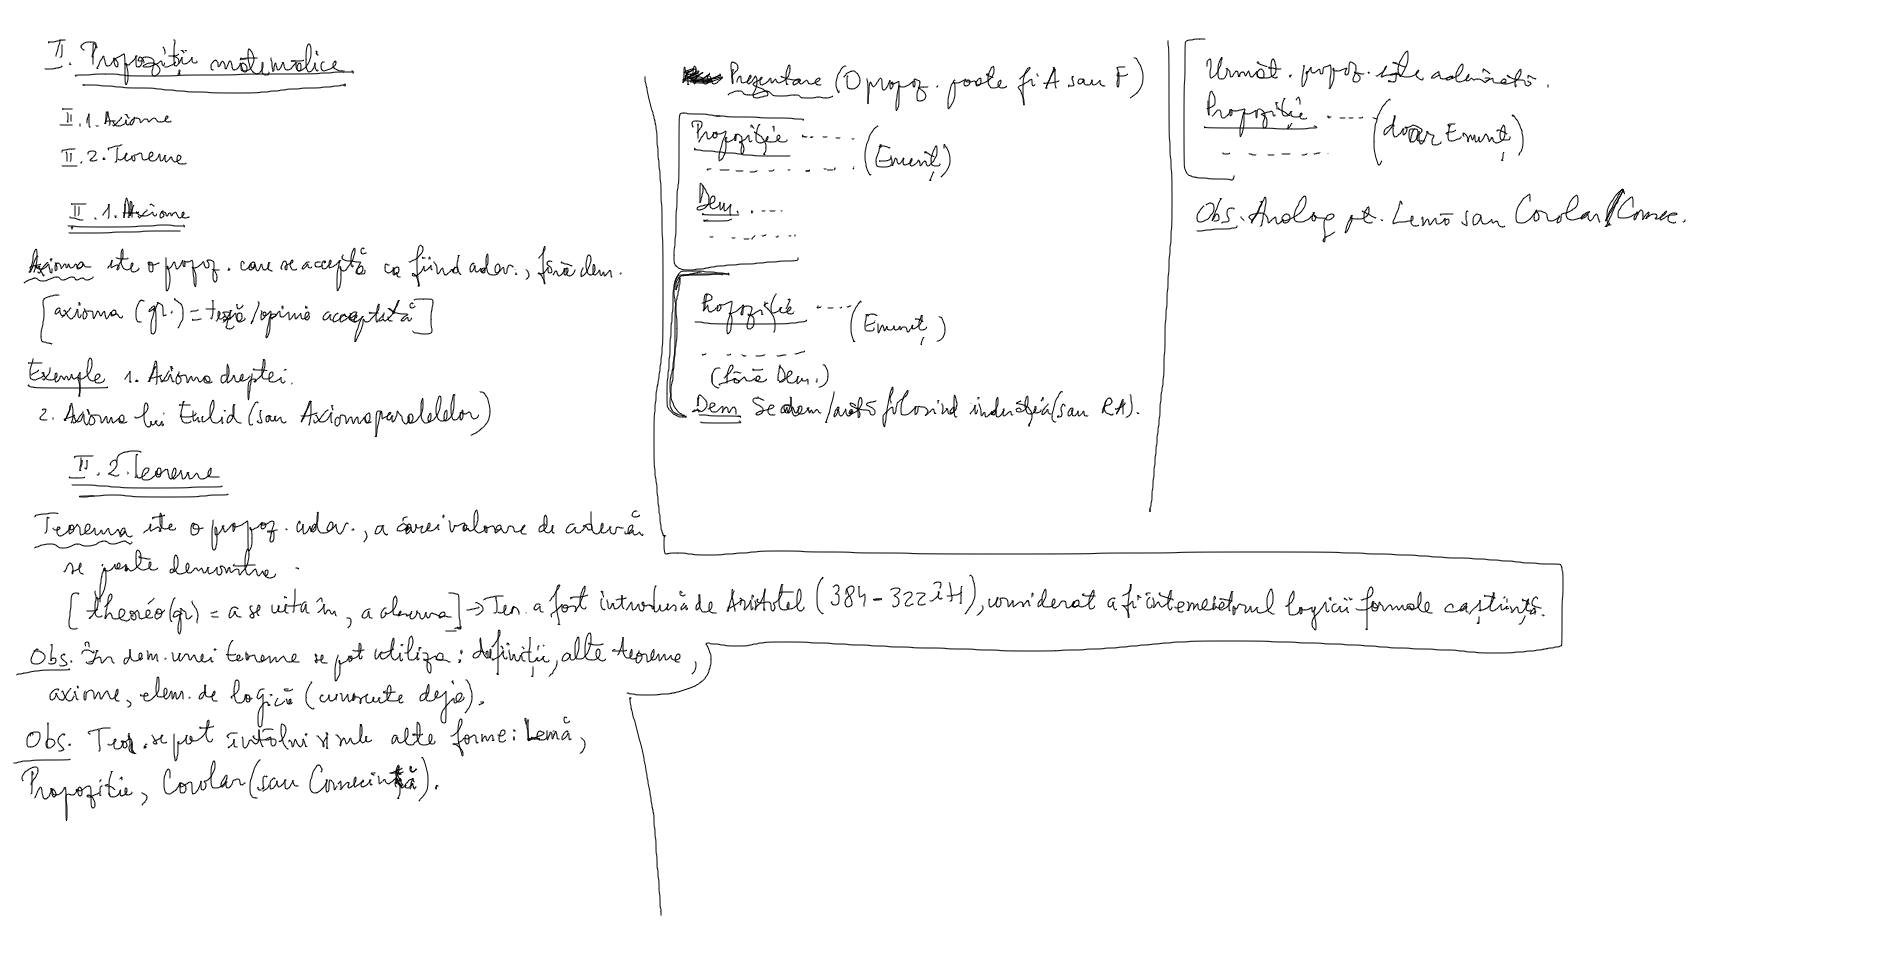 II. Propoziții matematice
II.1. Axiome
II.2. Teoreme
II.1. Axiome
Axioma este o propoz. care se acceptă ca fiind adev., fără dem.
[axioma (gr.) = teză/opinie acceptată]
Exemple 1. Axioma dreptei.
2. Axioma lui Euclid (sau Axioma paralelelor)
II.2. Teoreme
Teorema este o propoz. adev., a cărei valoare de adevăr
se poate demonstra.
[theoréo (gr) = a se uita în, a observa] → Ter. a fost introdusă de Aristotel (384-322 îH), considerat a fi întemeietorul logicii formale ca știință.
Obs. În dem. unei teoreme se pot utiliza: definiții, alte teoreme,
axiome, elem. de logică (cunoscute deja).
Obs. Teor. se pot întâlni și sub alte forme: Lemă,
Propoziție, Corolar (sau Consecință).
Prezentare (O propoz. poate fi A sau F)
Propoziție ..... (Enunț)
Dem. ....
Propoziție .... (Enunț)
(fără Dem.)
Dem Se dem/arată folosind inducția (sau RA).
Următ. propoz. este adevărată.
Propoziție .... (doar Enunț)
Obs. Analog pt. Lemă sau Corolar/Consec.